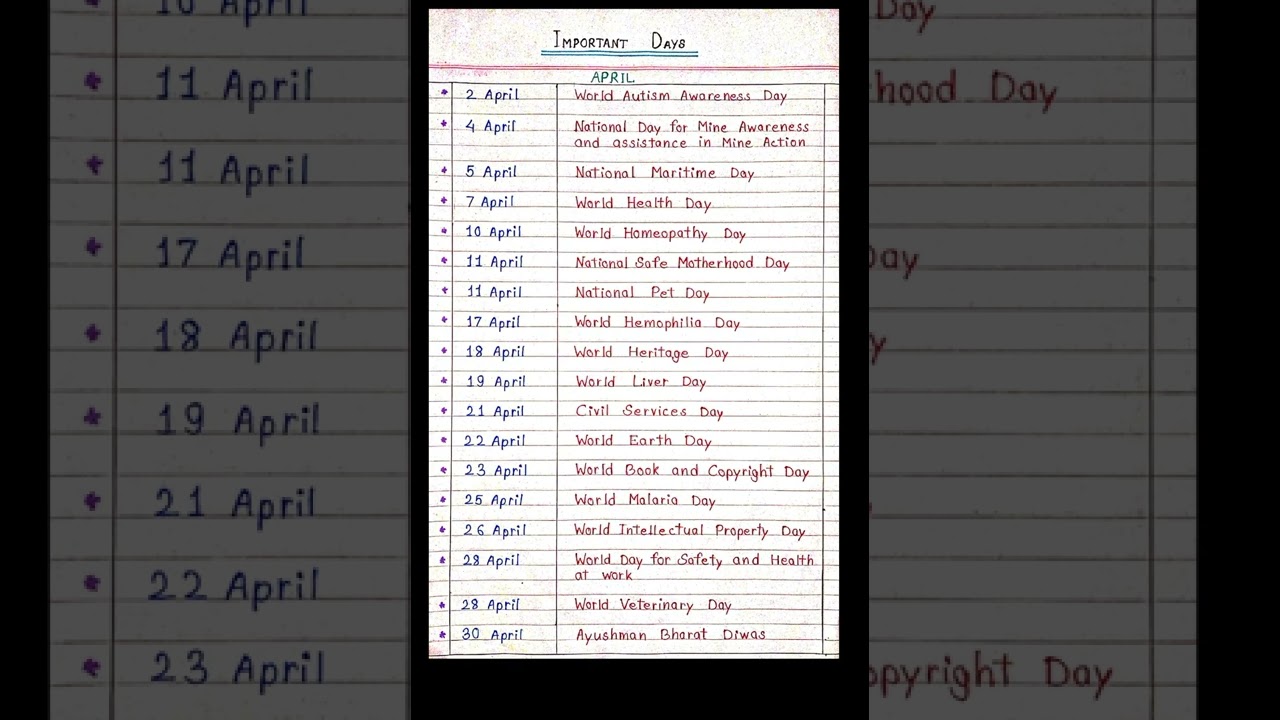 IMPORTANT DAYS
APRIL
* 2 April World Autism Awareness Day
* 4 April National Day for Mine Awareness
and assistance in Mine Action
* 5 April National Maritime Day
* 7 April World Health Day
* 10 April World Homeopathy Day
* 11 April National Safe Motherhood Day
* 11 April National Pet Day
* 17 April World Hemophilia Day
* 18 April World Heritage Day
* 19 April World Liver Day
* 21 April Civil Services Day
* 22 April World Earth Day
* 23 April World Book and Copyright Day
* 25 April World Malaria Day
* 26 April World Intellectual Property Day
* 28 April World Day for Safety and Health
at work
* 28 April World Veterinary Day
* 30 April Ayushman Bharat Diwas